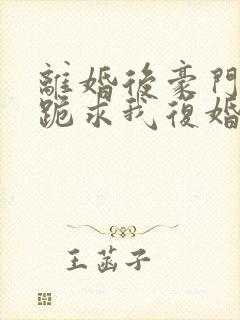 離婚後豪門
跪求我復婚
王菡子